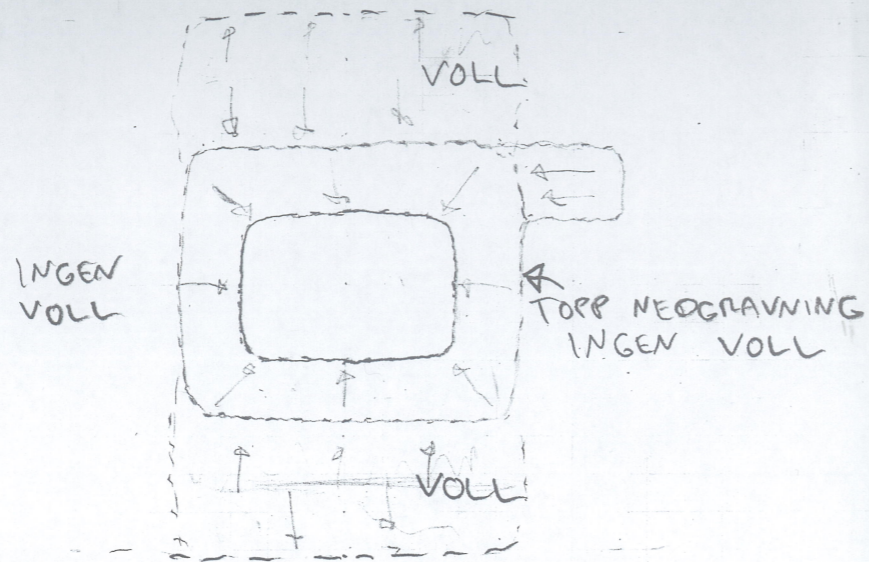 VOLL
INGEN
VOLL
TOPP NEDGRAVNING
INGEN VOLL
VOLL